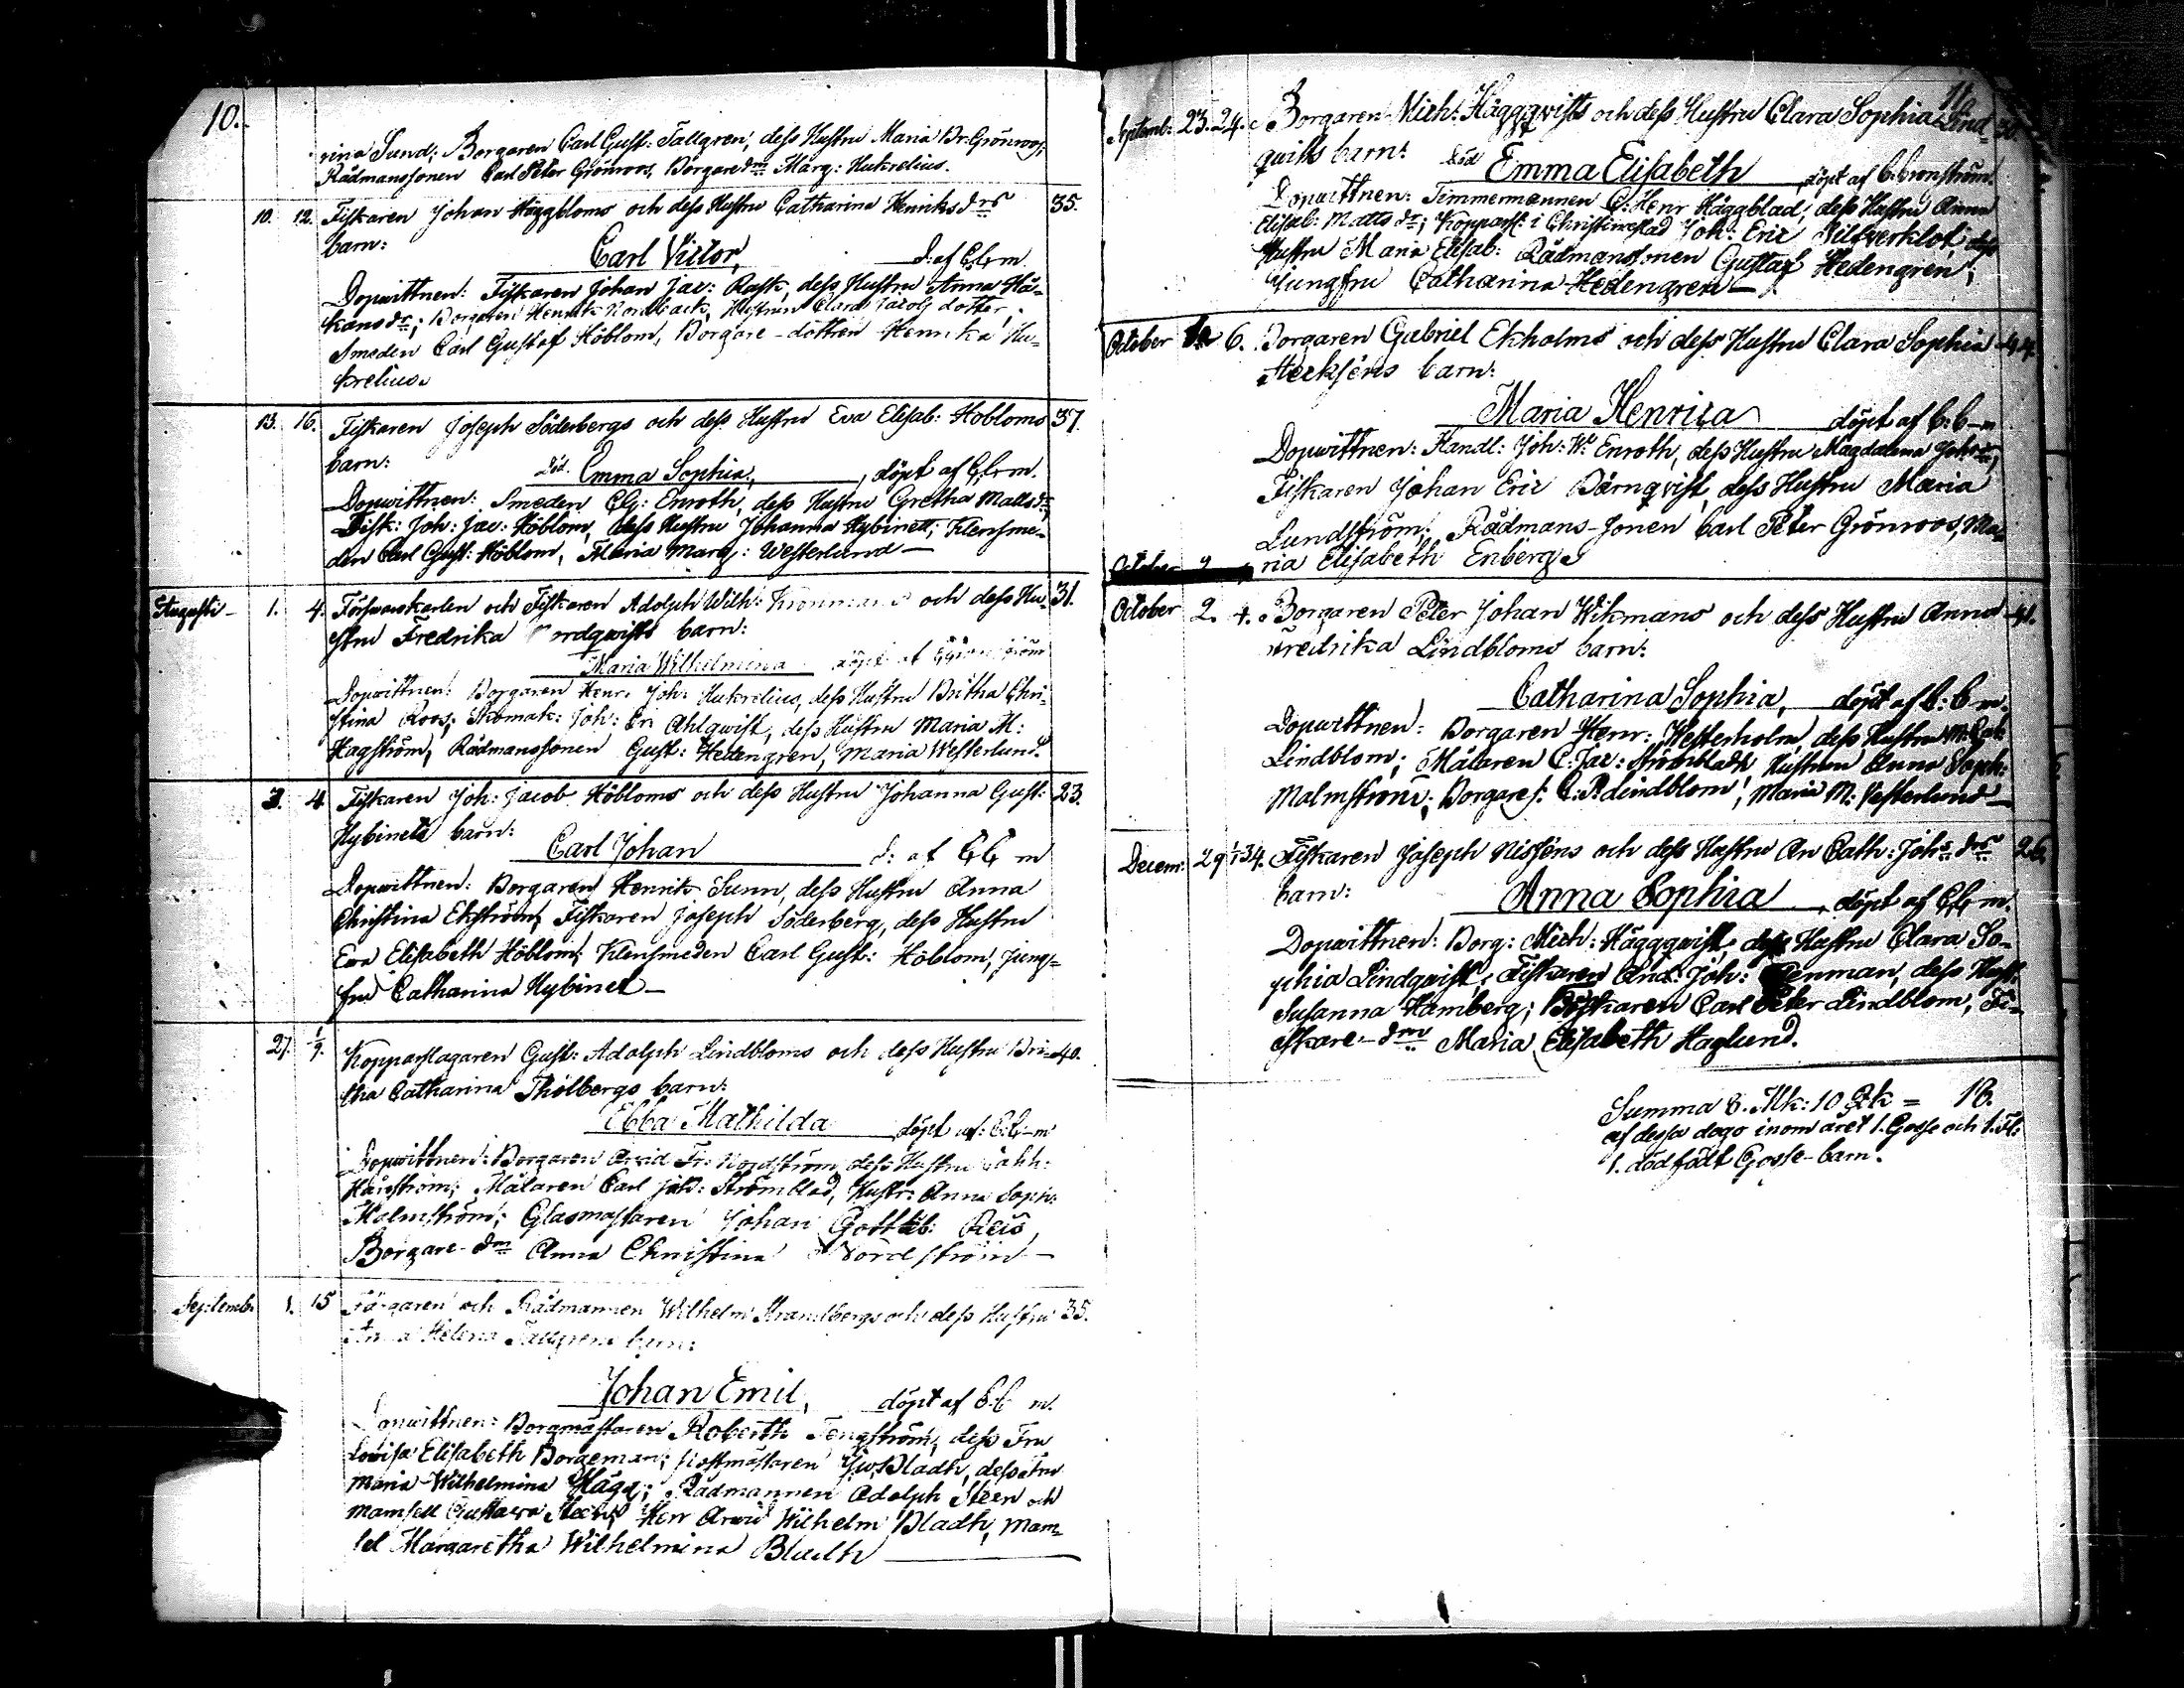 10.
rina Sund; Borgaren Carl Gust: Tallgren, dess Hustru Maria Br: Grönroos;
Rådmanssonen Carl Peter Grönroos, Borgaredrn Marg: Hukrelius.
10. 12. Fiskaren Johan Häggbloms och dess Hustru Catharina Henriksdrs 35.
barn:
Carl Victor, d: af C.C-m.
Dopwittnen: Fiskaren Johan Jac: Rask, dess Hustru Anna Hå-
kansdr; Borgaren Henrik Nordback, Hustrun Clara Jacobs dotter;
Smeden Carl Gustaf Höblom, Borgare-dottren Henrika Hu-
krelius.
13. 16. Fiskaren Joseph Söderbergs och dess Hustru Eva Elisab: Höbloms 37.
barn:
död. Emma Sophia, döpt af C.C-m.
Dopwittnen: Smeden Enroth, dess Hustru Gretha Mattsdr,
Fisk: Joh: Jac: Höblom, dess Hustru Johanna Hybinett; Klensme-
den Carl Gust: Höblom, Maria Marg: Westerlund —
Augusti — 1. 4. Förswarskarlen och Fiskaren Adolph Wilh: Kronmans och dess Hu- 31.
stru Fredrika Nordqwists barn:
Maria Wilhelmina döpt af
Dopwittnen: Borgaren Henr: Joh: Hukrelius, dess Hustru Britha Chri-
stina Roos; Skomak: Joh: Er: Ahlqwist, dess Hustru Maria M:
Hagström, Rådmanssonen Gust: Hedengren, Maria Westerlund.
3. 4. Fiskaren Joh: Jacob Höbloms och dess Hustru Johanna Gust: 23.
Hybinets barn:
Carl Johan d: af C.C m
Dopwittnen: Borgaren Henrik Sunn, dess Hustru Anna
Christina Ekström; Fiskaren Joseph Söderberg, dess Hustru
Eva Elisabeth Höblom; Klensmeden Carl Gust: Höblom, Jung-
fru Catharina Hybinet —
27. 1/9. Kopparslagaren Gust: Adolph Lindbloms och dess Hustru Bri- 40.
tha Catharina Thölbergs barn:
Ebba Mathilda döpt af: C.C-m
Dopwittnen: Borgaren Arvid Fr: Nordström, dess Hustru Cathh:
Målaren Carl Jak: Strömblad, Hustr: Anna Soph:
Malmström; Glasmästaren Johan Gottlieb: Reis,
Borgare-drn Anna Christina Nordström —
Septemb: 1. 15 Färgaren och Rådmannen Wilhelm Strandbergs och dess Hustru 35.
Anna Helena Tallgrens barn:
Johan Emil, döpt af C.C m.
Dopwittnen: Borgmästaren Roberth Tengström, dess Fru
Lovisa Elisabeth Borgeman; Postmästaren Bladh, dess Fru
Maria Wilhelmina Hägg; Rådmannen Adolph Steen och
Mamsell Gustava Steen; Herr Arvid Wilhelm Bladh, Mam-
sel Margaretha Wilhelmina Bladh
11.
Septemb: 23. 24. Borgaren Mich: Häggqvists och dess Hustru Clara Sophia Lind- 30.
qwists barn:
död Emma Elisabeth, döpt af C. Cronström.
Dopwittnen: Timmermannen C: Henr Häggblad, dess Hustru Anna
Elisab: Mattsdr; Kopparsl: i Christinestad Joh: Eric dess
Hustru Maria Elisab: Rådmanssonen Gustaf Hedengren;
Jungfru Catharina Hedengren —
October 6. Borgaren Gabriel Ekholms och dess Hustru Clara Sophia 44.
barn:
Maria Henrica döpt af C: C-m
Dopwittnen: Handl: Joh: Wm Enroth, dess Hustru Magdalena Johsdr,
Fiskaren Johan Eric Björnqvist, dess Hustru Maria
Lundström; Rådmans-sonen Carl Peter Grönroos, Ma-
ria Elisabeth Enberg
October 2. 4. Borgaren Peter Johan Wikmans och dess Hustru Anna 41.
Fredrika Lindbloms barn:
Catharina Sophia, döpt af C: C m.
Dopwittnen: Borgaren Henr: Westerholm, dess Hustru
Lindblom; Målaren C: Jac: Strömblads Hustru Anna Soph:
Malmström; Borgares: C. P. Lindblom, Maria M: Vesterlund —
Decem: 29 1/1 34. Fiskaren Joseph Nisséns och dess Hustru An Cath: Johs drs 26.
barn:
Anna Sophia, döpt af C.C m.
Dopwittnen: Borg: Mich: Häggqwist, dess Hustru Clara So-
phia Lindqwist; Fiskaren And: Joh: dess Hust:
Susanna Hamberg; Fiskaren Carl Peter Lindblom, Fi-
skare-drn Maria Elisabeth Haglund.
Summa 8. Mk: 10 Qk = 18.
af dessa dogo inom året 1. Gosse och 1. Fl:
1. dödfödt Gosse-barn.